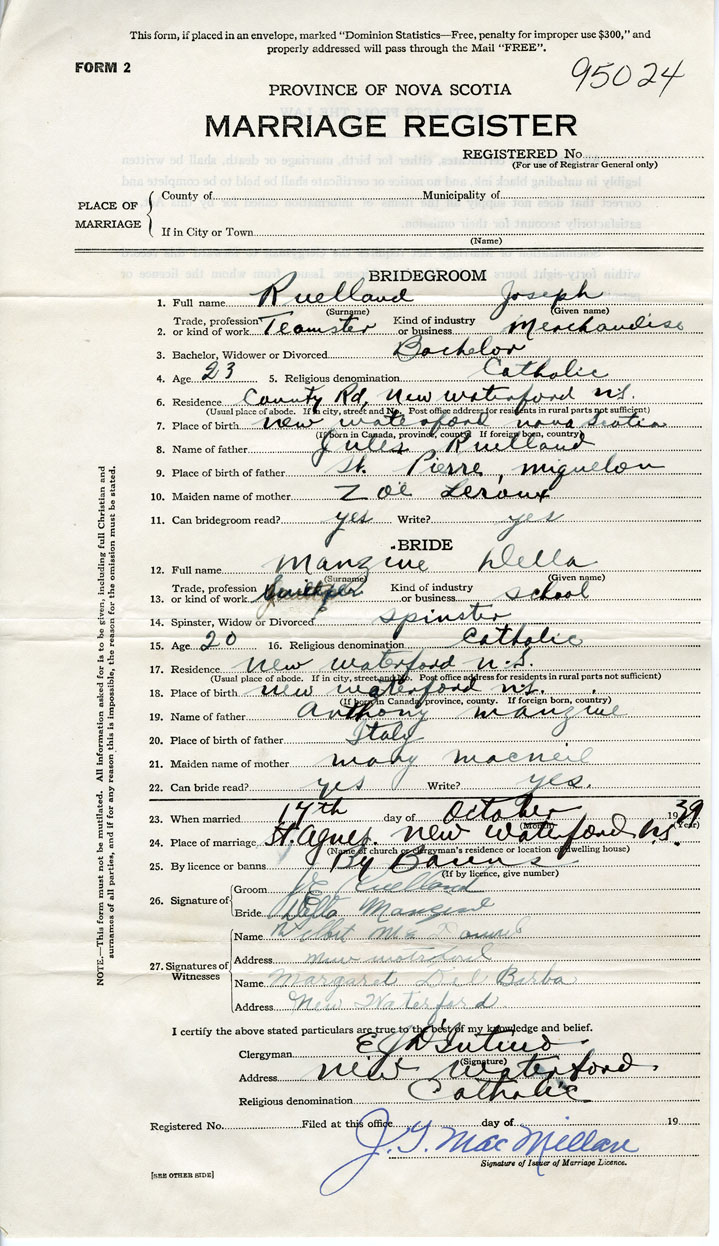 This form, if placed in an envelope, marked "Dominion Statistics—Free, penalty for improper use $300," and
properly addressed will pass through the Mail "FREE".
FORM 2
95024
PROVINCE OF NOVA SCOTIA
MARRIAGE REGISTER
REGISTERED No.
(For use of Registrar General only)
PLACE OF MARRIAGE
County of Municipality of
If in City or Town
(Name)
BRIDEGROOM
1. Full name Ruelland Joseph
(Surname) (Given name)
2. Trade, profession or kind of work Teamster Kind of industry or business Merchandise
3. Bachelor, Widower or Divorced Bachelor
4. Age 23 5. Religious denomination Catholic
6. Residence County Rd, New Waterford N.S.
(Usual place of abode. If in city, street and No. Post office address for residents in rural parts not sufficient)
7. Place of birth New Waterford Nova Scotia
(If born in Canada, province, county. If foreign born, country)
8. Name of father Jules Ruelland
9. Place of birth of father St. Pierre, Miguelon
10. Maiden name of mother Zoë Leroux
11. Can bridegroom read? yes Write? yes
BRIDE
12. Full name Manzine Della
(Surname) (Given name)
13. Trade, profession or kind of work Kind of industry or business School
14. Spinster, Widow or Divorced Spinster
15. Age 20 16. Religious denomination Catholic
17. Residence New Waterford N.S.
(Usual place of abode. If in city, street and No. Post office address for residents in rural parts not sufficient)
18. Place of birth New Waterford N.S.
(If born in Canada, province, county. If foreign born, country)
19. Name of father Anthony Manzine
20. Place of birth of father Italy
21. Maiden name of mother Mary MacNeil
22. Can bride read? yes Write? yes.
23. When married 14th day of October 1939
(Month) (Year)
24. Place of marriage St. Agnes. New Waterford N.S.
(Name of church or clergyman's residence or location of dwelling house)
25. By licence or banns By Banns
(If by licence, give number)
26. Signature of
Groom J E Ruelland
Bride Della Manzine
27. Signatures of Witnesses
Name Wilbert
Address New Waterford
Name Margaret Del Barba
Address New Waterford
I certify the above stated particulars are true to the best of my knowledge and belief.
Clergyman E J D'Intino.
(Signature)
Address New Waterford.
Religious denomination Catholic
Registered No. Filed at this office day of 19
J. G. MacMillan
Signature of Issuer of Marriage Licence.
[SEE OTHER SIDE]
NOTE.—This form must not be mutilated. All information asked for is to be given, including full Christian and
surnames of all parties, and if for any reason this is impossible, the reason for the omission must be stated.